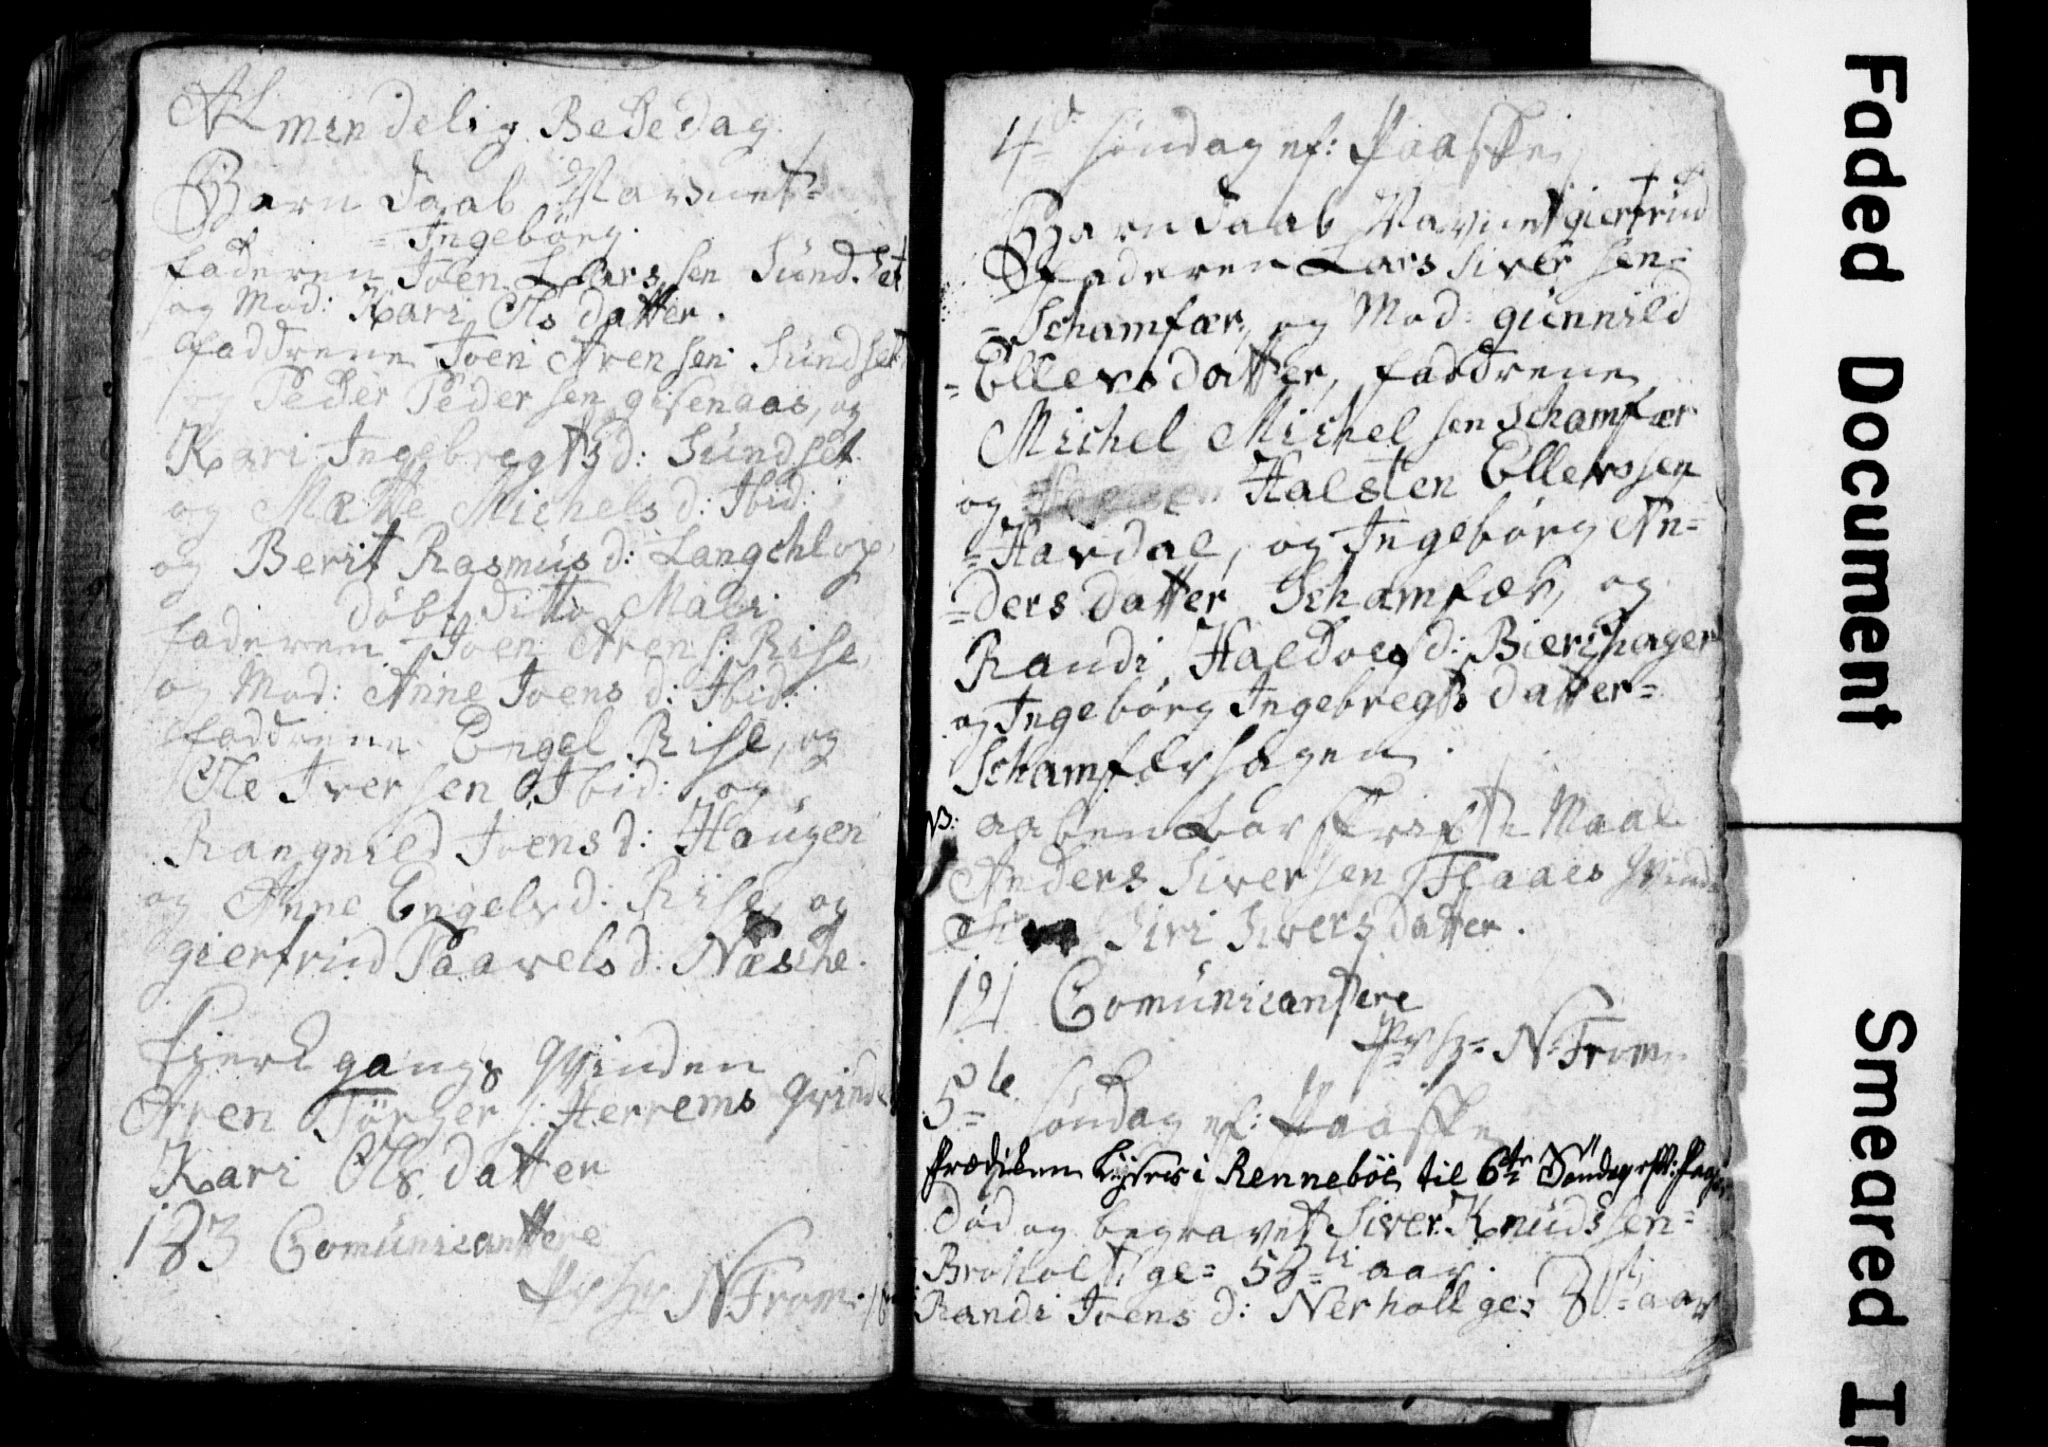 Almindelig Bededag.
Barn Daab Navnet=
=Ingebörg.
faderen Joen Larssen Sundset
og Mod: Kari Ols datter.
faddrene Joen Arensen Sundset
og Peder Pedersen gisenaas, og
Kari Ingebregtsd: Sundset
og Mette Michelsd: Ibid:
og Berit Rasmusd: Langchlop,
döbt ditto Mali
faderen Joen Arens: Rise,
og Mod: Anne Joensd: Ibid:
faddrene Engel Rise, og
Ole Iversen Ibid: og
Rangnild Joensd: Haugen
og Anne Engelsd: Rise, og
giertrud Paavelsd: Næsche.
kierkgangs qvinden
Aren Törgers: Herrems qvinde
Kari Ols datter
183 Comunicantere
N From
4de söndag ef: Paaske
Barn Daab Navnet giertrud
faderen Lars Siversen=
=Schamfær, og Mod: gunnild
=Ellevsdatter, faddrene
Michel Michelsen Schamfær
og Halsten Ellevssen
=Hardal, og Ingebörg An=
=ders datter Schamfær, og
Randi Haldoesd: Bierchager
og Ingebörg Ingebregts datter=
Schamfærhagen.
NB: aabenbar skrifte Maal
Anders Siversen Haaes qvinde
Siri Sivers datter.
121 Comunicantere
N: From
5te söndag ef: Paaske
Prædiken lyses i Renneböe til 6te Söndag
Död og begravet Siver Knudssen=
Broholt ge= 58 aar.
Randi Joensd: Nerholl ge= 81 aar
Faded Document
Smeared In